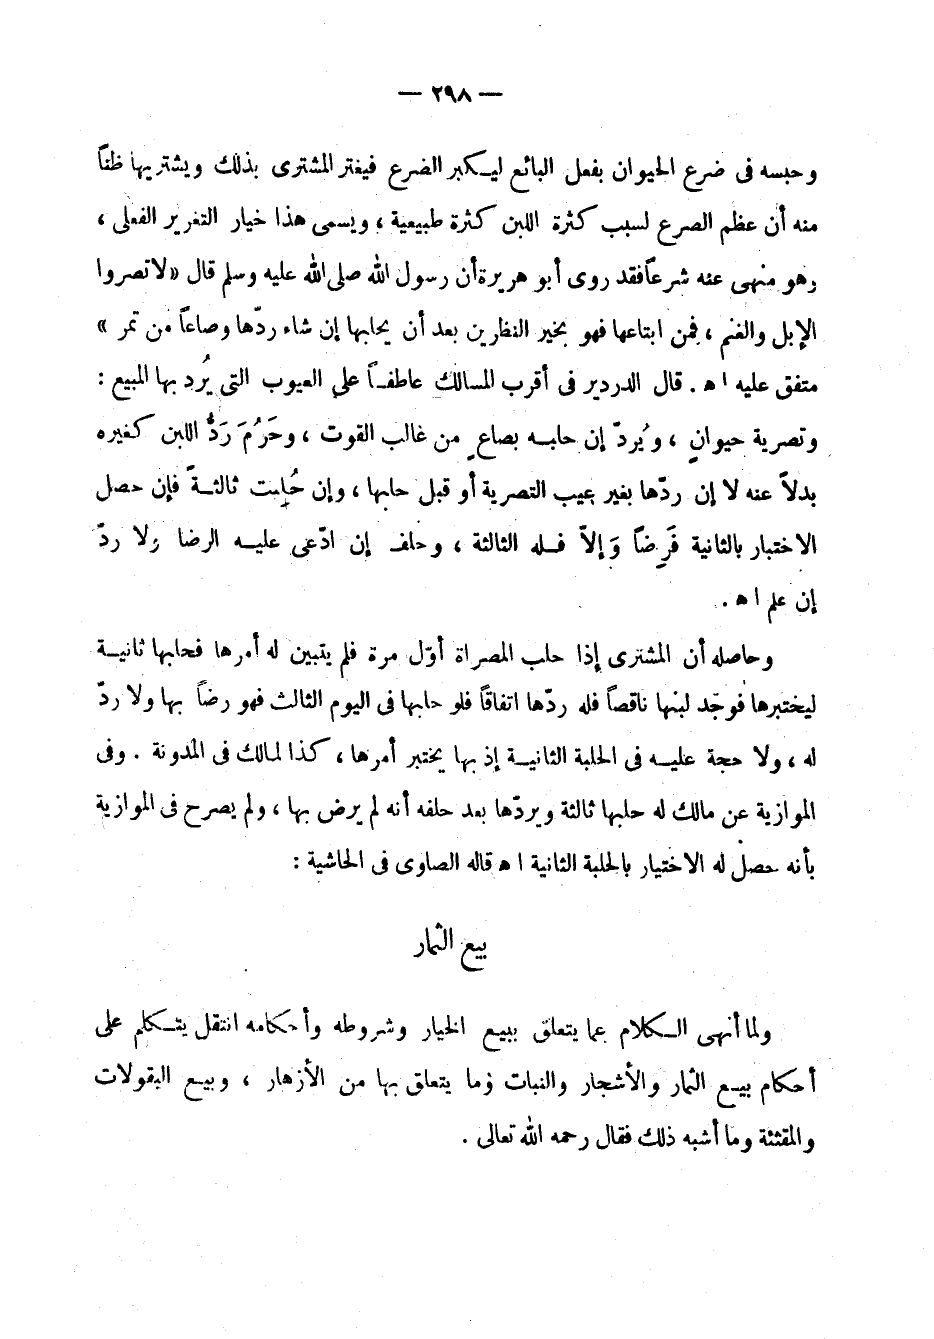 — ٢٩٨ —
وحبسه فى ضرع الحيوان بفعل البائع ليكبر الضرع فيغتر المشترى بذلك ويشتريها ظناً
منه أن عظم الضرع لسبب كثرة اللبن كثرة طبيعية ، ويسمى هذا خيار التغرير الفعلى ،
وهو منهى عنه شرعاً فقد روى أبو هريرة أن رسول الله صلى الله عليه وسلم قال « لا تصروا
الإبل والغنم ، فمن ابتاعها فهو بخير النظرين بعد أن يحلبها إن شاء ردّها وصاعاً من تمر »
متفق عليه ا ه . قال الدردير فى أقرب المسالك عاطفاً على العيوب التى يُرد بها المبيع :
وتصرية حيوانٍ ، ويُردّ إن حلبه بصاعٍ من غالب القوت ، وحَرُمَ رَدُّ اللبن كغيره
بدلاً عنه لا إن ردّها بغير عيب التصرية أو قبل حلبها ، وإن حُلِبت ثالثةً فإن حصل
الاختبار بالثانية فَرِضاً وَإلاّ فله الثالثة ، وحلف إن ادّعى عليه الرضا ولا ردّ
إن علم ا ه .
وحاصله أن المشترى إذا حلب المصراة أوّل مرة فلم يتبين له أمرها فحلبها ثانية
ليختبرها فوجد لبنها ناقصاً فله ردّها اتفاقاً فلو حلبها فى اليوم الثالث فهو رضاً بها ولا ردّ
له ، ولا حجة عليه فى الحلبة الثانية إذ بها يختبر أمرها ، كذا لمالك فى المدونة . وفى
الموازية عن مالك له حلبها ثالثة ويردّها بعد حلفه أنه لم يرض بها ، ولم يصرح فى الموازية
بأنه حصل له الاختيار بالحلبة الثانية ا ه قاله الصاوى فى الحاشية :
بيع الثمار
ولما أنهى الكلام عما يتعلق ببيع الخيار وشروطه وأحكامه انتقل يتكلم على
أحكام بيع الثمار والأشجار والنبات وما يتعلق بها من الأزهار ، وبيع البقولات
والمقثثة وما أشبه ذلك فقال رحمه الله تعالى .